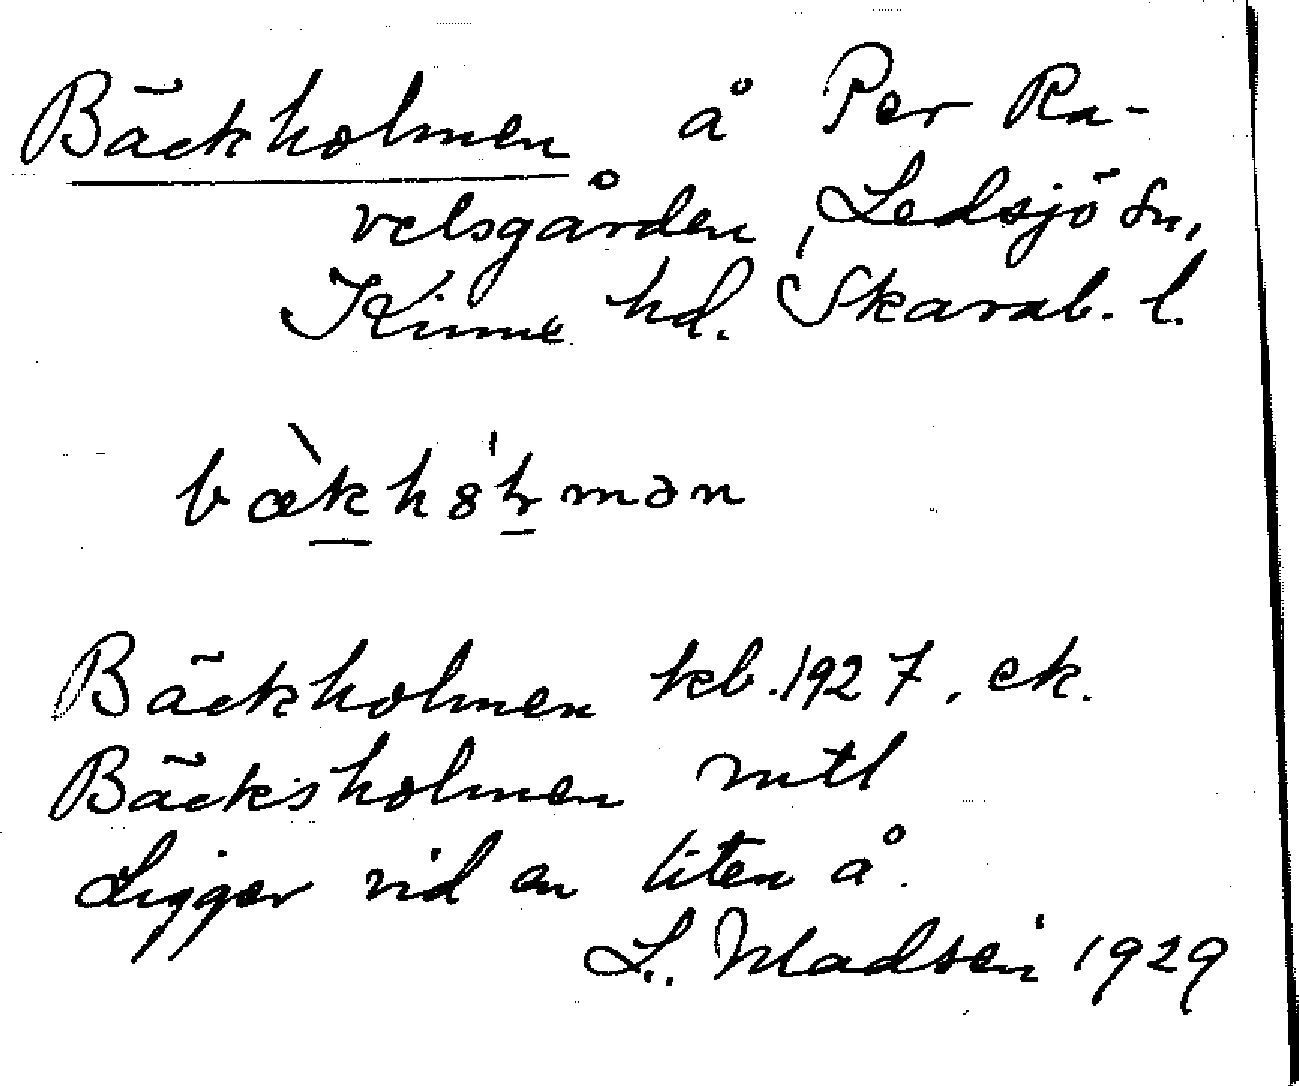 Bäckholmen å Per Ra-
velsgården, Ledsjö sn,
Kinne hd. Skarab. l.
bækh8lmən
Bäckholmen kb. 1927, ek.
Bäcksholmen mtl
Ligger vid en liten å.
L. Madsén 1929